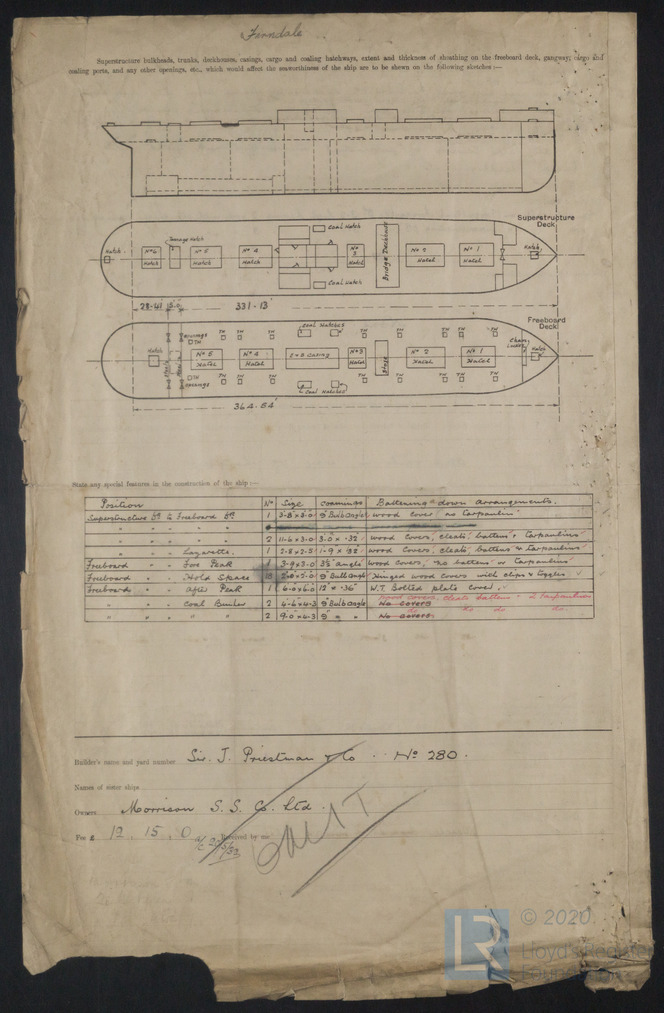 Ferndale
Superstructure bulkheads, trunks, deckhouses, casings, cargo and coaling hatchways, extent and thickness of sheathing on the freeboard deck, gangway, cargo and
coaling ports, and any other openings, etc., which would affect the seaworthiness of the ship are to be shown on the following sketches :—
Superstructure
Deck
Hatch
Nº 6
Hatch
Tonnage Hatch
Nº 5
Hatch
Nº 4
Hatch
Coal Hatch
Coal Hatch
Nº
3
Hatch
Bridge Deckhouse
Nº 2
Hatch
Nº 1
Hatch
Hatch
28·41
331·13'
Freeboard
Deck
Hatch
Openings
TH
TH
Openings
TH TH TH
TH TH TH
Nº 5
Hatch
Nº 4
Hatch
Coal Hatches
E & B CASING
Coal Hatches
Nº 3
Hatch
TH TH TH TH
TH TH TH TH
Nº 2
Hatch
Nº 1
Hatch
Chain
Lockers
Hatch
364·54'
State any special features in the construction of the ship :—
Position Nº Size Coamings Battening down arrangements.
Superstructure Dk to Freeboard Dk. 1 3·8 x 3·0 9" Bulb Angle wood cover, no tarpaulin
" " " " 2 11·6 x 3·0 3·0 x ·32 wood covers, cleats, battens & tarpaulins
" " Lazarette. 1 2·8 x 2·5 1·9 x ·32 wood covers, cleats, battens & tarpaulins
Freeboard " Fore Peak 1 3·9 x 3·0 3½" angle wood covers, no battens or tarpaulins
Freeboard " Hold Space 9" Bulb angle Hinged wood covers with clips & toggles
Freeboard " After Peak 1 6·0 x 6·0 12" x ·36" W.T. Bolted plate cover
wood covers, cleats battens & 2 tarpaulins
" " Coal Bunker 2 4·6 x 4·3 9" Bulb angle No covers
do do do.
" " " " 2 9·0 x 4·3 9" " " No covers
Builder's name and yard number Sir. J. Priestman & Co. Nº 280.
Names of sister ships
Owners Morrison S. S. Co. Ltd.
Fee £ 12 . 15 . 0 Received by me
© 2020
LR
Lloyd's Register
Foundation